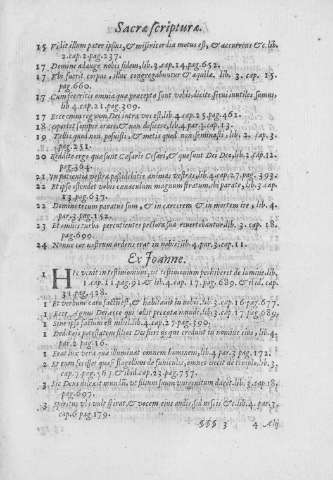 Sacræ scripturæ.
15 Vidit illum pater ipsius, & misericordia motus est, & accurrens &c. lib.
2. cap. 2. pag. 237.
17 Domine adauge nobis fidem, lib. 3. cap. 14. pag. 652.
17 Vbi fuerit corpus, illuc congregabuntur & aquilæ. lib. 3. cap. 15.
pag. 660.
17 Cum feceritis omnia quæ præcepta sunt vobis, dicite servi inutiles sumus,
lib 4. cap. 21. pag. 309.
17 Ecce enim regnum Dei intra vos est. lib 4. cap. 25. pag. 461.
18 oportet semper orare, & non deficere, lib. 4. par. 3. cap. 13.
19 Tollis quod non posuisti, & metis quod non seminasti, lib. 2. cap. 3.
pag. 251.
20 Reddite ergo quæ sunt Cæsaris Cæsari, & quæ sunt Dei Deo, lib. 2. cap. 12.
pag. 364.
21 In patientia vestra possidebitis animas vestras. lib. 4. cap. 27. pag. 393.
22 Et ipse ostendet vobis cœnaculum magnum stratum, ibi parate, lib. 3. cap.
13. pag. 637.
22 Domine tecum paratus sum, & in carcerem & in mortem ire, lib. 4.
par. 3. pag. 152.
23 Et omnis turba percutientes pectora sua revertebantur. lib. 3. cap. 18.
pag. 690.
24 Nonne cor nostrum ardens erat in nobis, lib. 4. par. 3. cap. 11.
Ex Joanne.
1 HIc venit in testimonium, ut testimonium perhiberet de lumine, lib.
1. cap. 11. pag. 91. & lib. 4. cap. 17. pag. 689. & ibid. cap.
31 pag. 428.
1 Et verbum caro factum est, & habitavit in nobis. lib. 3. cap. 16 pag. 677.
1 Ecce Agnus Dei ecce qui tollit peccata mundi, lib. 3. cap. 17. pag. 689.
1 Sine ipso factum est nihil. lib. 4. cap. 27. pag. 590.
1 Dedit eis potestatem filios Dei fieri iis qui credunt in nomine eius, lib. 4.
par. 2. pag. 16.
1 Erat lux vera quæ illuminat omnem hominem, lib. 4. par. 3 pag. 172.
2 Et cum fecisset quasi flagellum de funiculis, omnes eiecit de templo, lib. 3.
cap. 7. pag. 563. & ibid. cap. 22. pag. 757.
3 Sic Deus dilexit mundum, ut filium suum unigenitum daret. lib. 3. cap. 18.
pag. 697.
3 Spiritus ubi vult spirat, & vocem eius audis, sed nescis & c. lib. 4. par. 3.
cap. 6 pag. 179.
§§§ 3
4 Alij